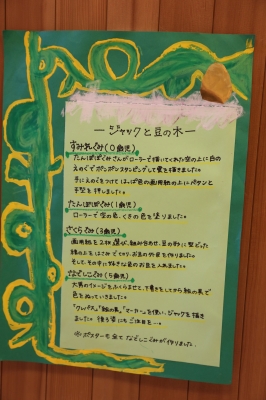 ージャックと豆の木ー
すみれぐみ(0歳児)
たんぽぽぐみさんがローラーで描いてくれた空の上に白の
えのぐでポンポンスタンピングして雲を描きました。
手にえのぐをつけて はっぱ色の画用紙の上にペタンと
手型を押しました。
たんぽぽぐみ(1歳児)
ローラーで空の色、くきの色を塗りました。
さくらぐみ(3歳児)
画用紙を2枚選び、組み合わせ、豆のように型どった
線の上をはさみで切り、お豆の外皮を作りました。
そしてその中に好きな豆のお豆を入れました。
なでしこぐみ(5歳児)
大男のイメージをふくらませて、下書きをしてから絵の具で
色をぬっていきました。
「クレパス」「絵の具」「マーカー」を使い、ジャックを描き
ました。後ろ姿にもご注目を…。
※ポスターも全てなでしこぐみが作りました。